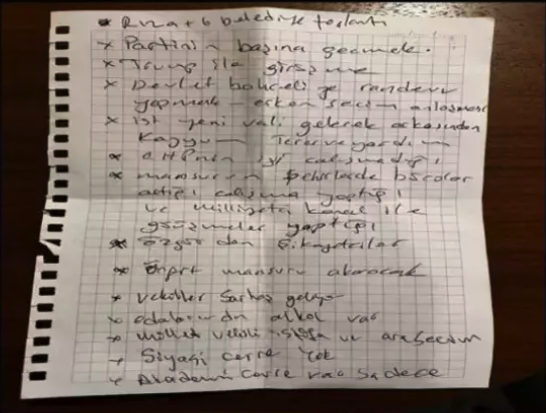 * Rıza + 6 belediye toplantı
* Partinin başına geçmek.
* Trump ile görüşme
* Devlet bahçeli ye randevu
yapmak - erken seçim anlaşması
* ist yeni vali gelerek arkasından
Kayyum Terör ve yardım
* CHPnin iyi çalışmadığı
* mansurun şehirlerde
çalışma yaptığı
ve milliyetçi kanal ile
görüşmeler yaptığı
* özgür den şikayetçiler
* mansuru
* vekiller Sarhoş geliyor
* odalarında alkol var
* millet vekili ve ara seçim
* Siyasi çevre yok
* Akademi çevre var Sadece